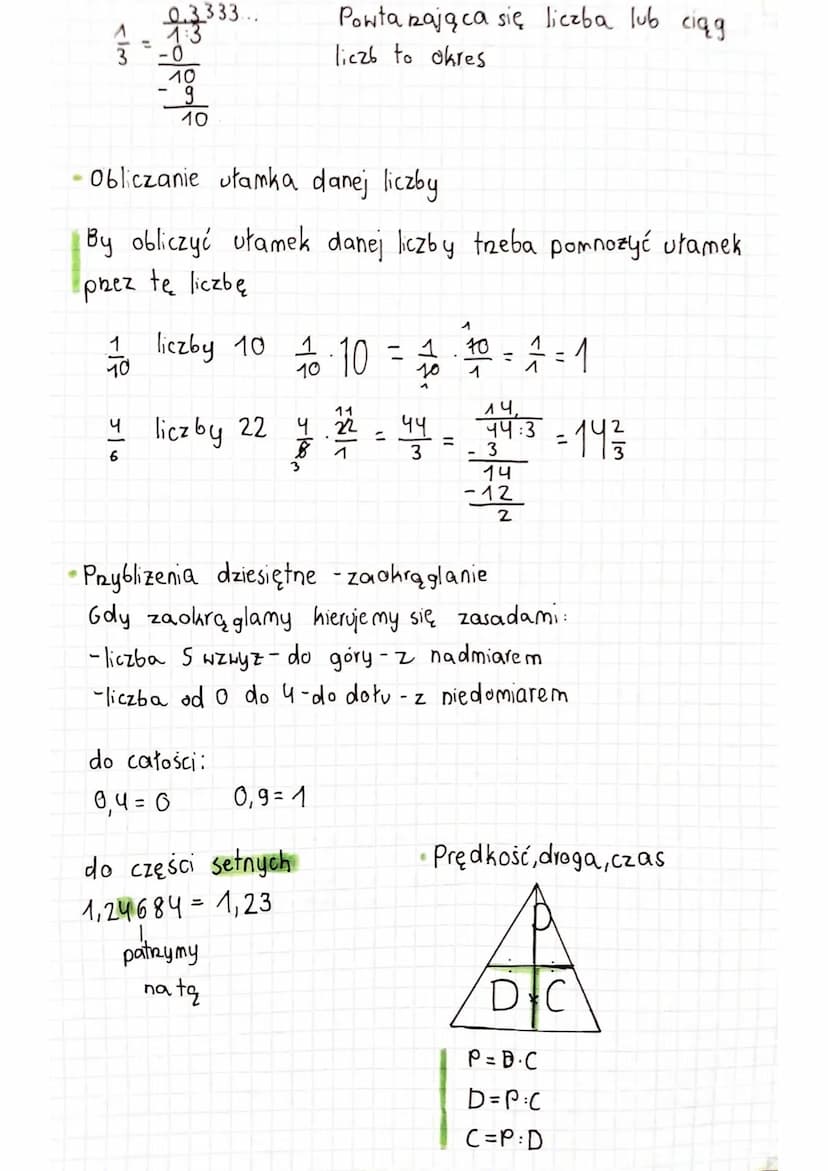 1/3 = 0.3333...
1:3
-0
10
- 9
10
Powtarzająca się liczba lub ciąg
liczb to okres
- Obliczanie ułamka danej liczby
By obliczyć ułamek danej liczby trzeba pomnożyć ułamek
przez tę liczbę
1/10 liczby 10 1/10 · 10 = 1/10 · 10/1 = 1/1 = 1
4/6 liczby 22 4/6 · 22/1 = 44/3 = 44:3 = 14 2/3
14
- 3
14
-12
2
• Przybliżenia dziesiętne - zaokrąglanie
Gdy zaokrąglamy kierujemy się zasadami:
- liczba 5 wzwyż - do góry - z nadmiarem
- liczba od 0 do 4 - do dołu - z niedomiarem
do całości:
0,4 = 0 0,9 = 1
do części setnych
1,24684 = 1,23
patrzymy
na tą
• Prędkość, droga, czas
P
D × C
P = D·C
D = P:C
C = P:D